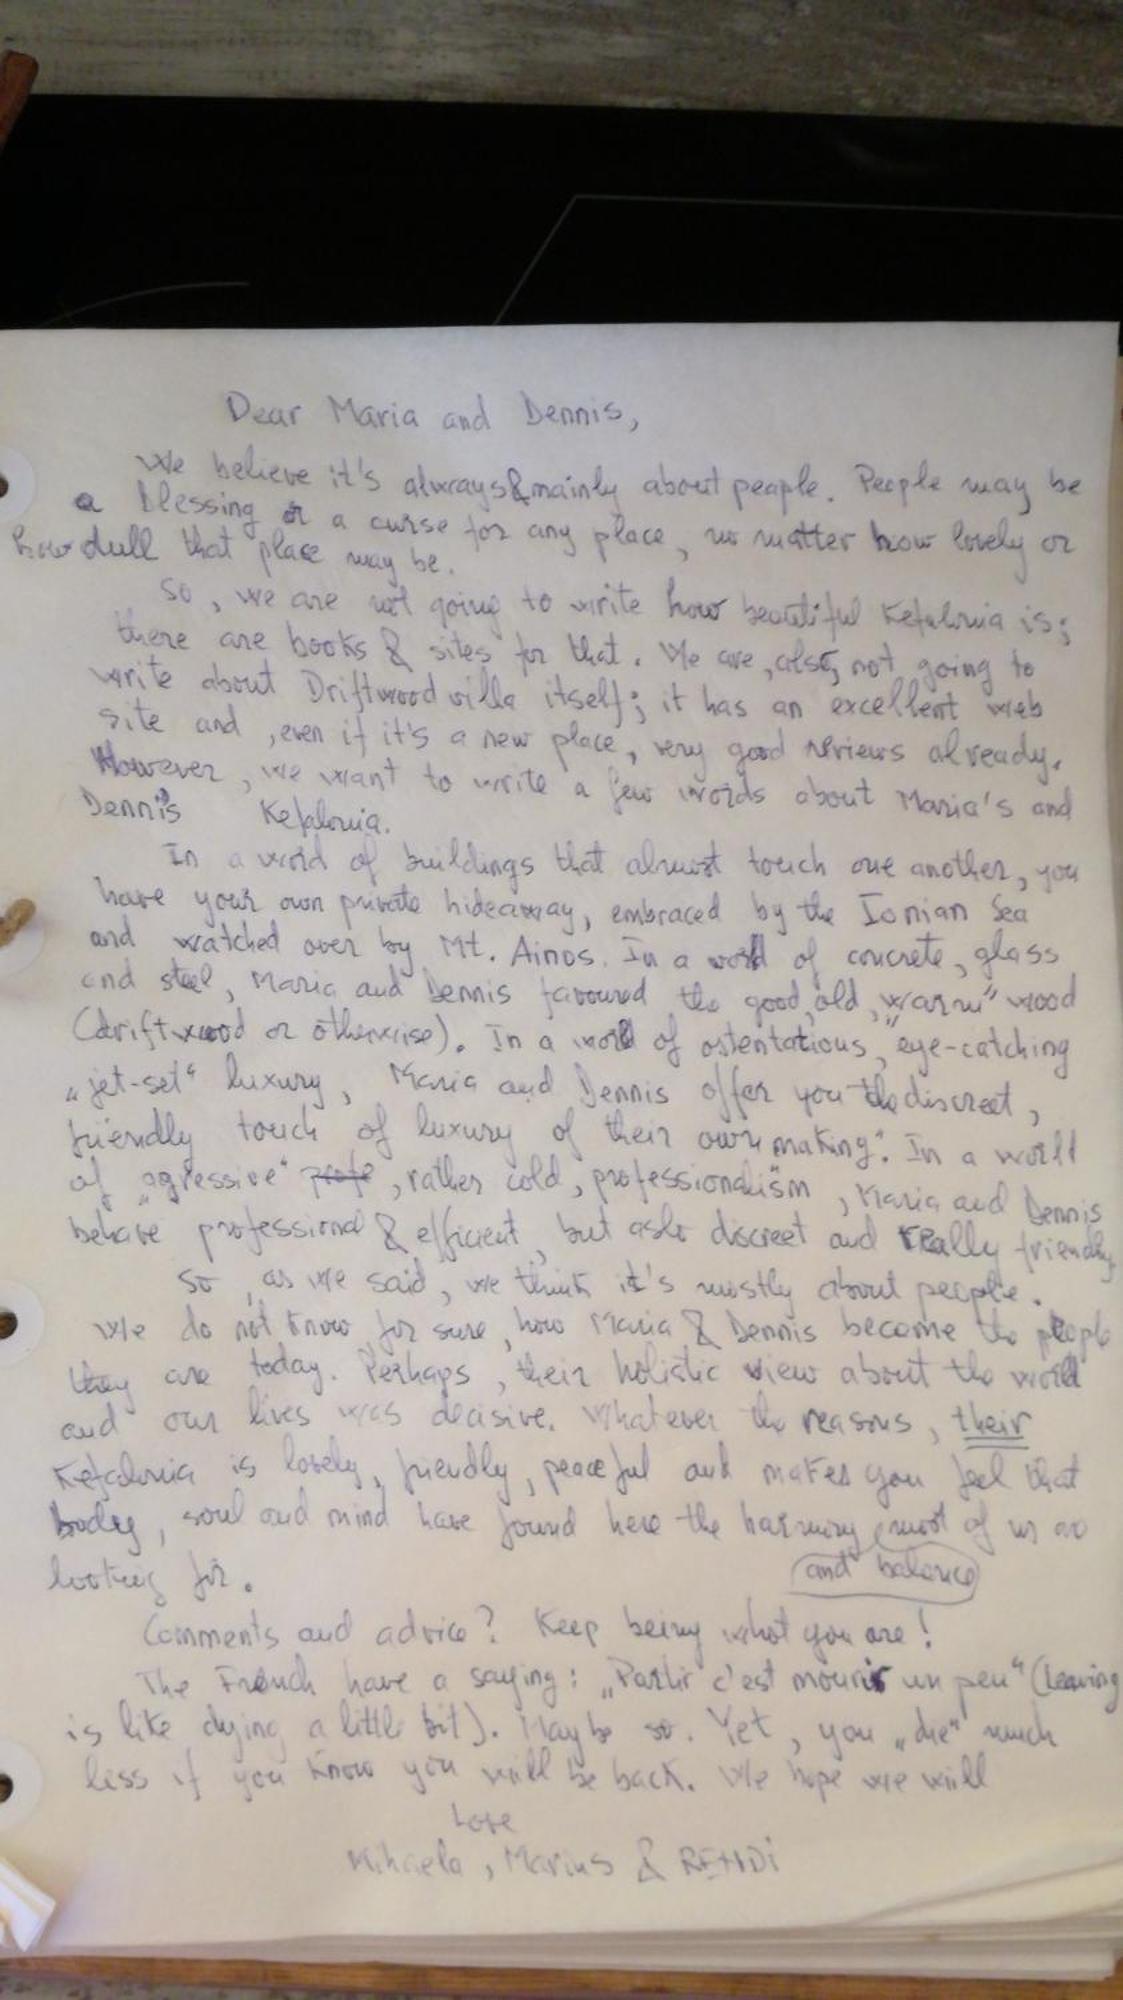 Dear Maria and Dennis,
We believe it's always & mainly about people. People may be
a blessing or a curse for any place, no matter how lovely or
how dull that place may be.
So, we are not going to write how beautiful Kefalonia is;
there are books & sites for that. We are, also, not going to
write about Driftwood villa itself; it has an excellent web
site and, even if it's a new place, very good reviews already.
However, we want to write a few words about Maria's and
Dennis Kefalonia.
In a world of buildings that almost touch one another, you
have your own private hideaway, embraced by the Ionian Sea
and watched over by Mt. Ainos. In a world of concrete, glass
and steel, Maria and Dennis favoured the good, old, „warm" wood
(driftwood or otherwise). In a world of ostentatious, eye-catching
„jet-set" luxury, Maria and Dennis offer you the discreet,
friendly touch of luxury of their own making. In a world
of „agressive" , rather cold, professionalism, Maria and Dennis
behave professional & efficient, but aslo discreet and really friendly
So, as we said, we think it's mostly about people.
We do not know for sure, how Maria & Dennis become the people
they are today. Perhaps, their holistic view about the world
and our lives was decisive. Whatever the reasons, their
Kefalonia is lovely, friendly, peaceful and makes you feel that
body, soul and mind have found here the harmony most of us are
looking for. and balance
Comments and advice? Keep being what you are!
The French have a saying: „Partir c'est mourir un peu" (Leaving
is like dying a little bit). Maybe so. Yet, you „die" much
less if you know you will be back. We hope we will
Love
Mihaela, Marius &